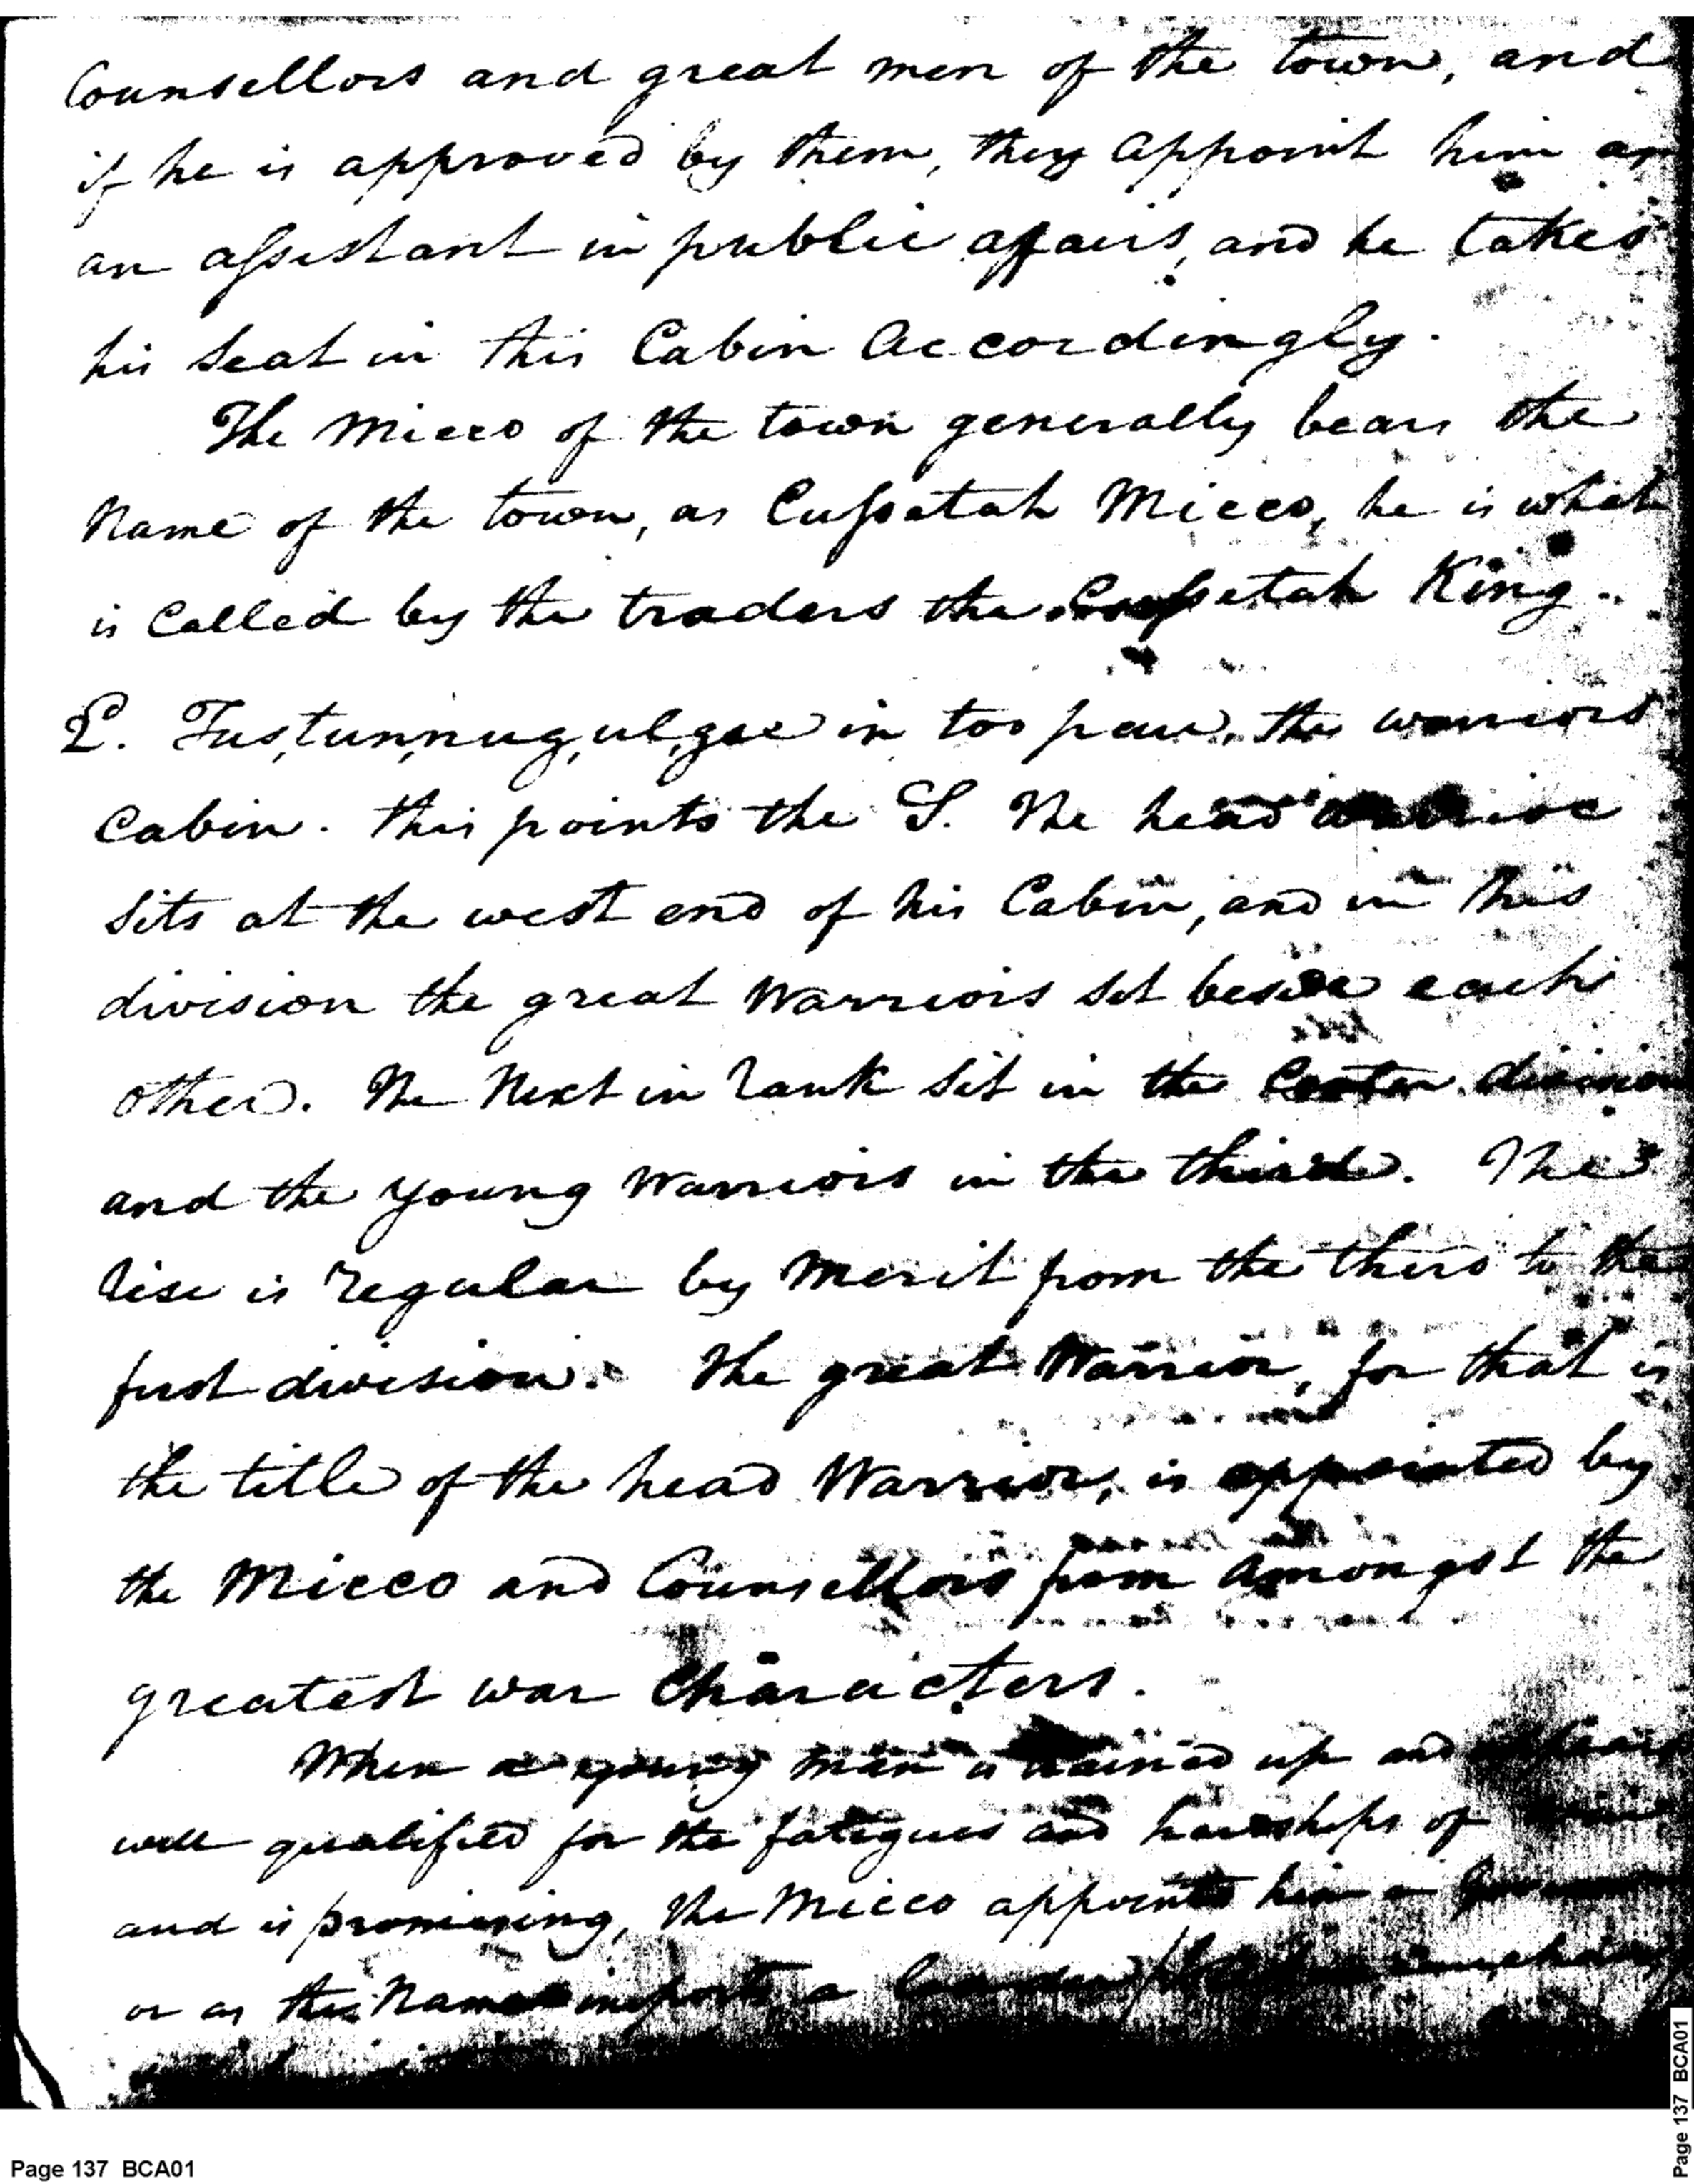 Counsellors and great men of the town, and
if he is approved by them, they appoint him as
an assistant in public affairs, and he takes
his seat in this Cabin Accordingly.
The Micco of the town generally bears the
Name of the town, as Cussetah Micco, he is what
is Called by the traders the Cussetah King.
2. Tus,tun,nug,ul,gee in too pau, the warriors
Cabin. this points the S. The head warrior
sits at the west end of his Cabin, and in this
division the great Warriors sit beside each
other. The Next in rank sit in the Center division
and the young Warriors in the third. The
rise is regular by Merit from the third to the
first division. The great Warrior, for that is
the title of the head Warrior, is appointed by
the Micco and Counsellors from amongst the
greatest war Characters.
When a young man is trained up and appears
well qualified for the fatigues and hardships of
and is promising, the Micco appoints him a
or as the Name imports a leader
Page 137 BCA01
Page 137 BCA01